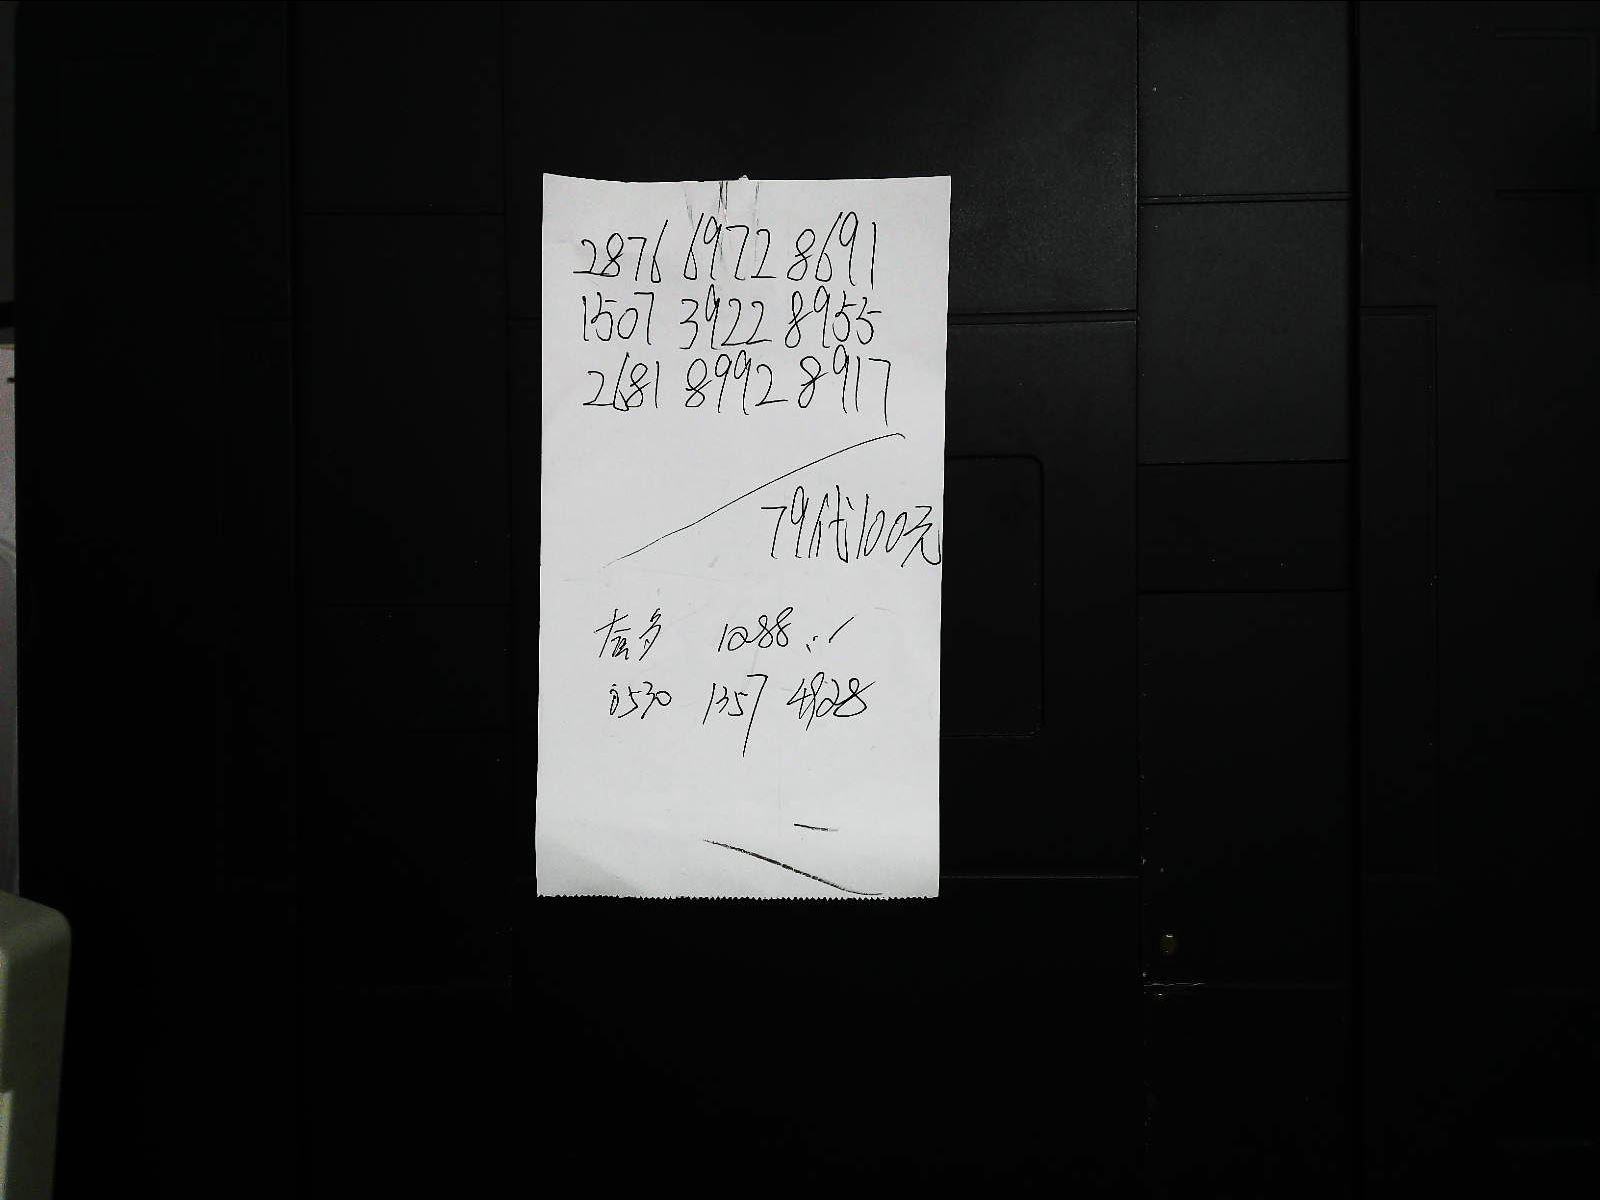 2876 6972 8691
1507 3922 8955
2681 8992 8917
79代100元
1288
1530 1357 4928